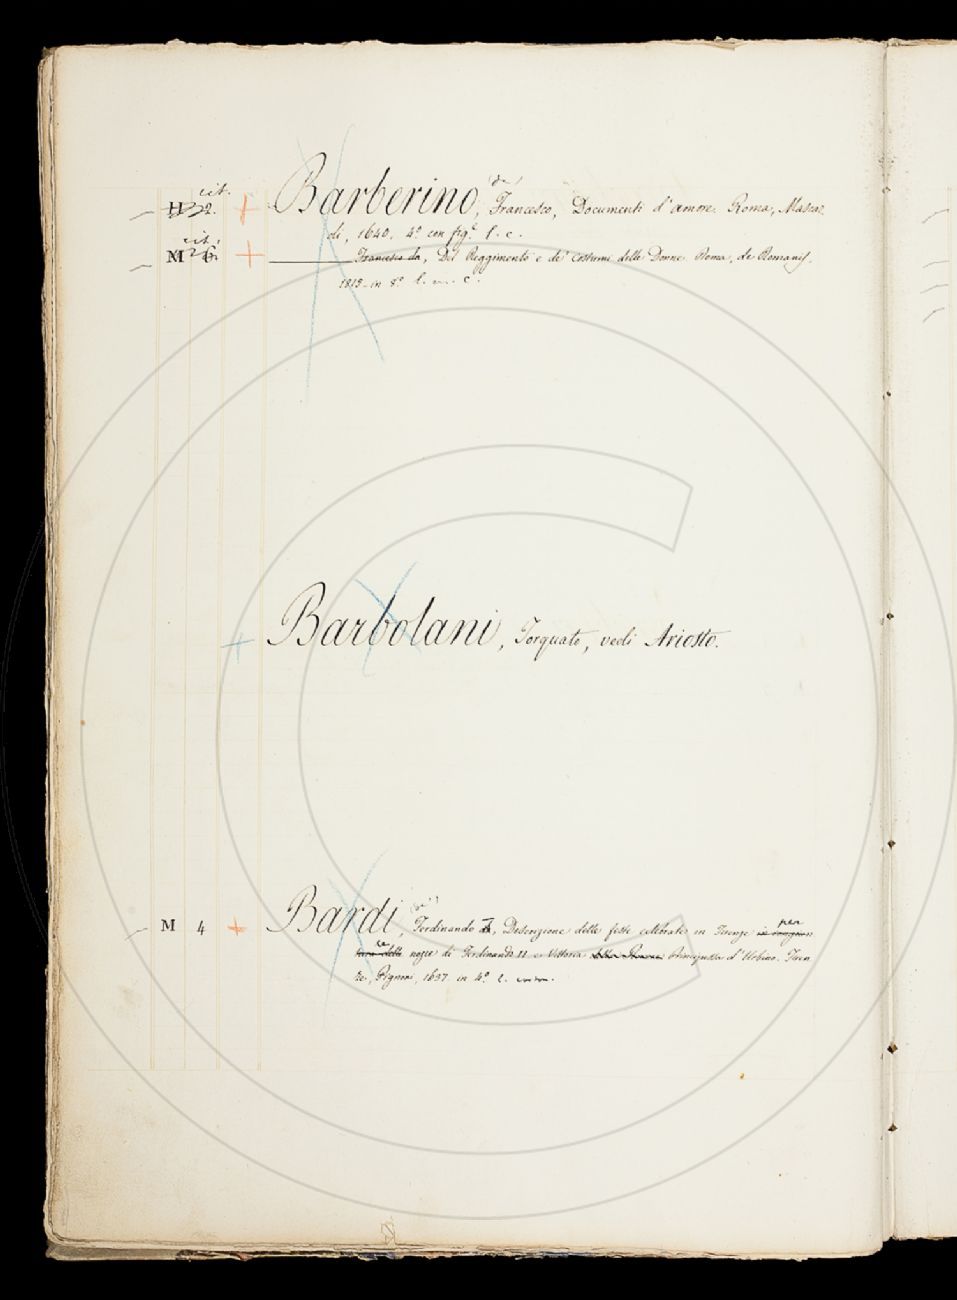 cit.
2. Barberino, (da) Francesco, Documenti d'amore. Roma, Mascar
di, 1640. 4º con figº. l. c.
cit.
M 6 Francesco da, Del Reggimento e de' costumi delle Donne. Roma, de Romanis,
1815. in 8º l. c.
Barbolani, Torquato, vedi Ariosto.
M 4 Bardi, Ferdinando, Descrizione delle feste celebrate in Firenze per
le nozze di Ferdinando II e Vittoria Principessa d'Urbino. Firen
ze, Pignoni, 1637. in 4º l.